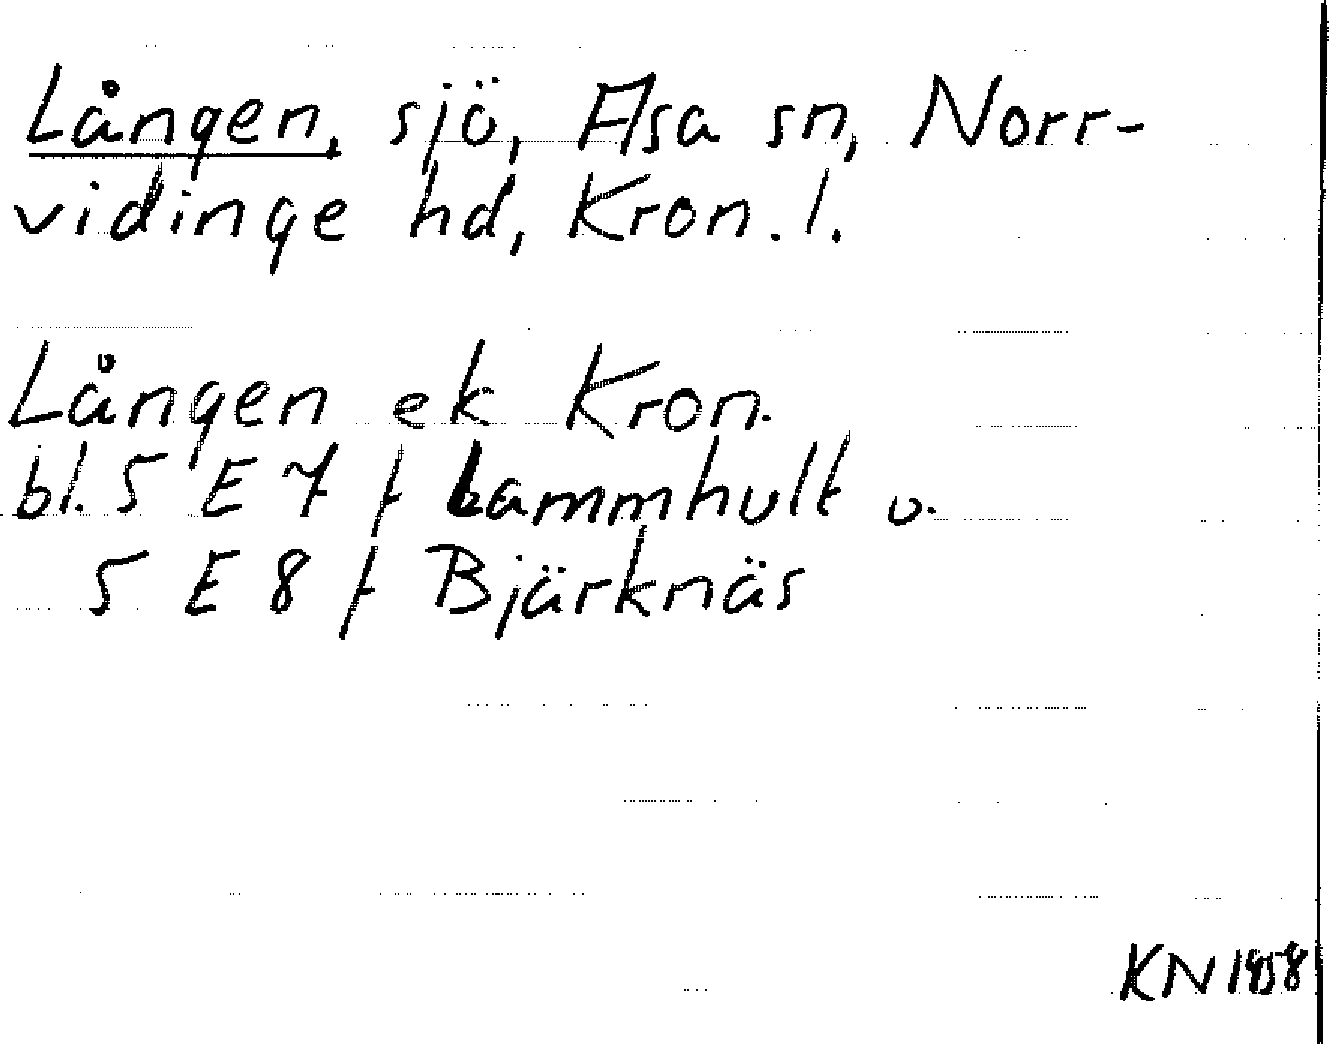 Lången, sjö, Asa sn, Norr-
vidinge hd, Kron. l.
Lången ek Kron.
bl. 5 E 7 f Lammhult o.
5 E 8 f Bjärknäs
KN 1958